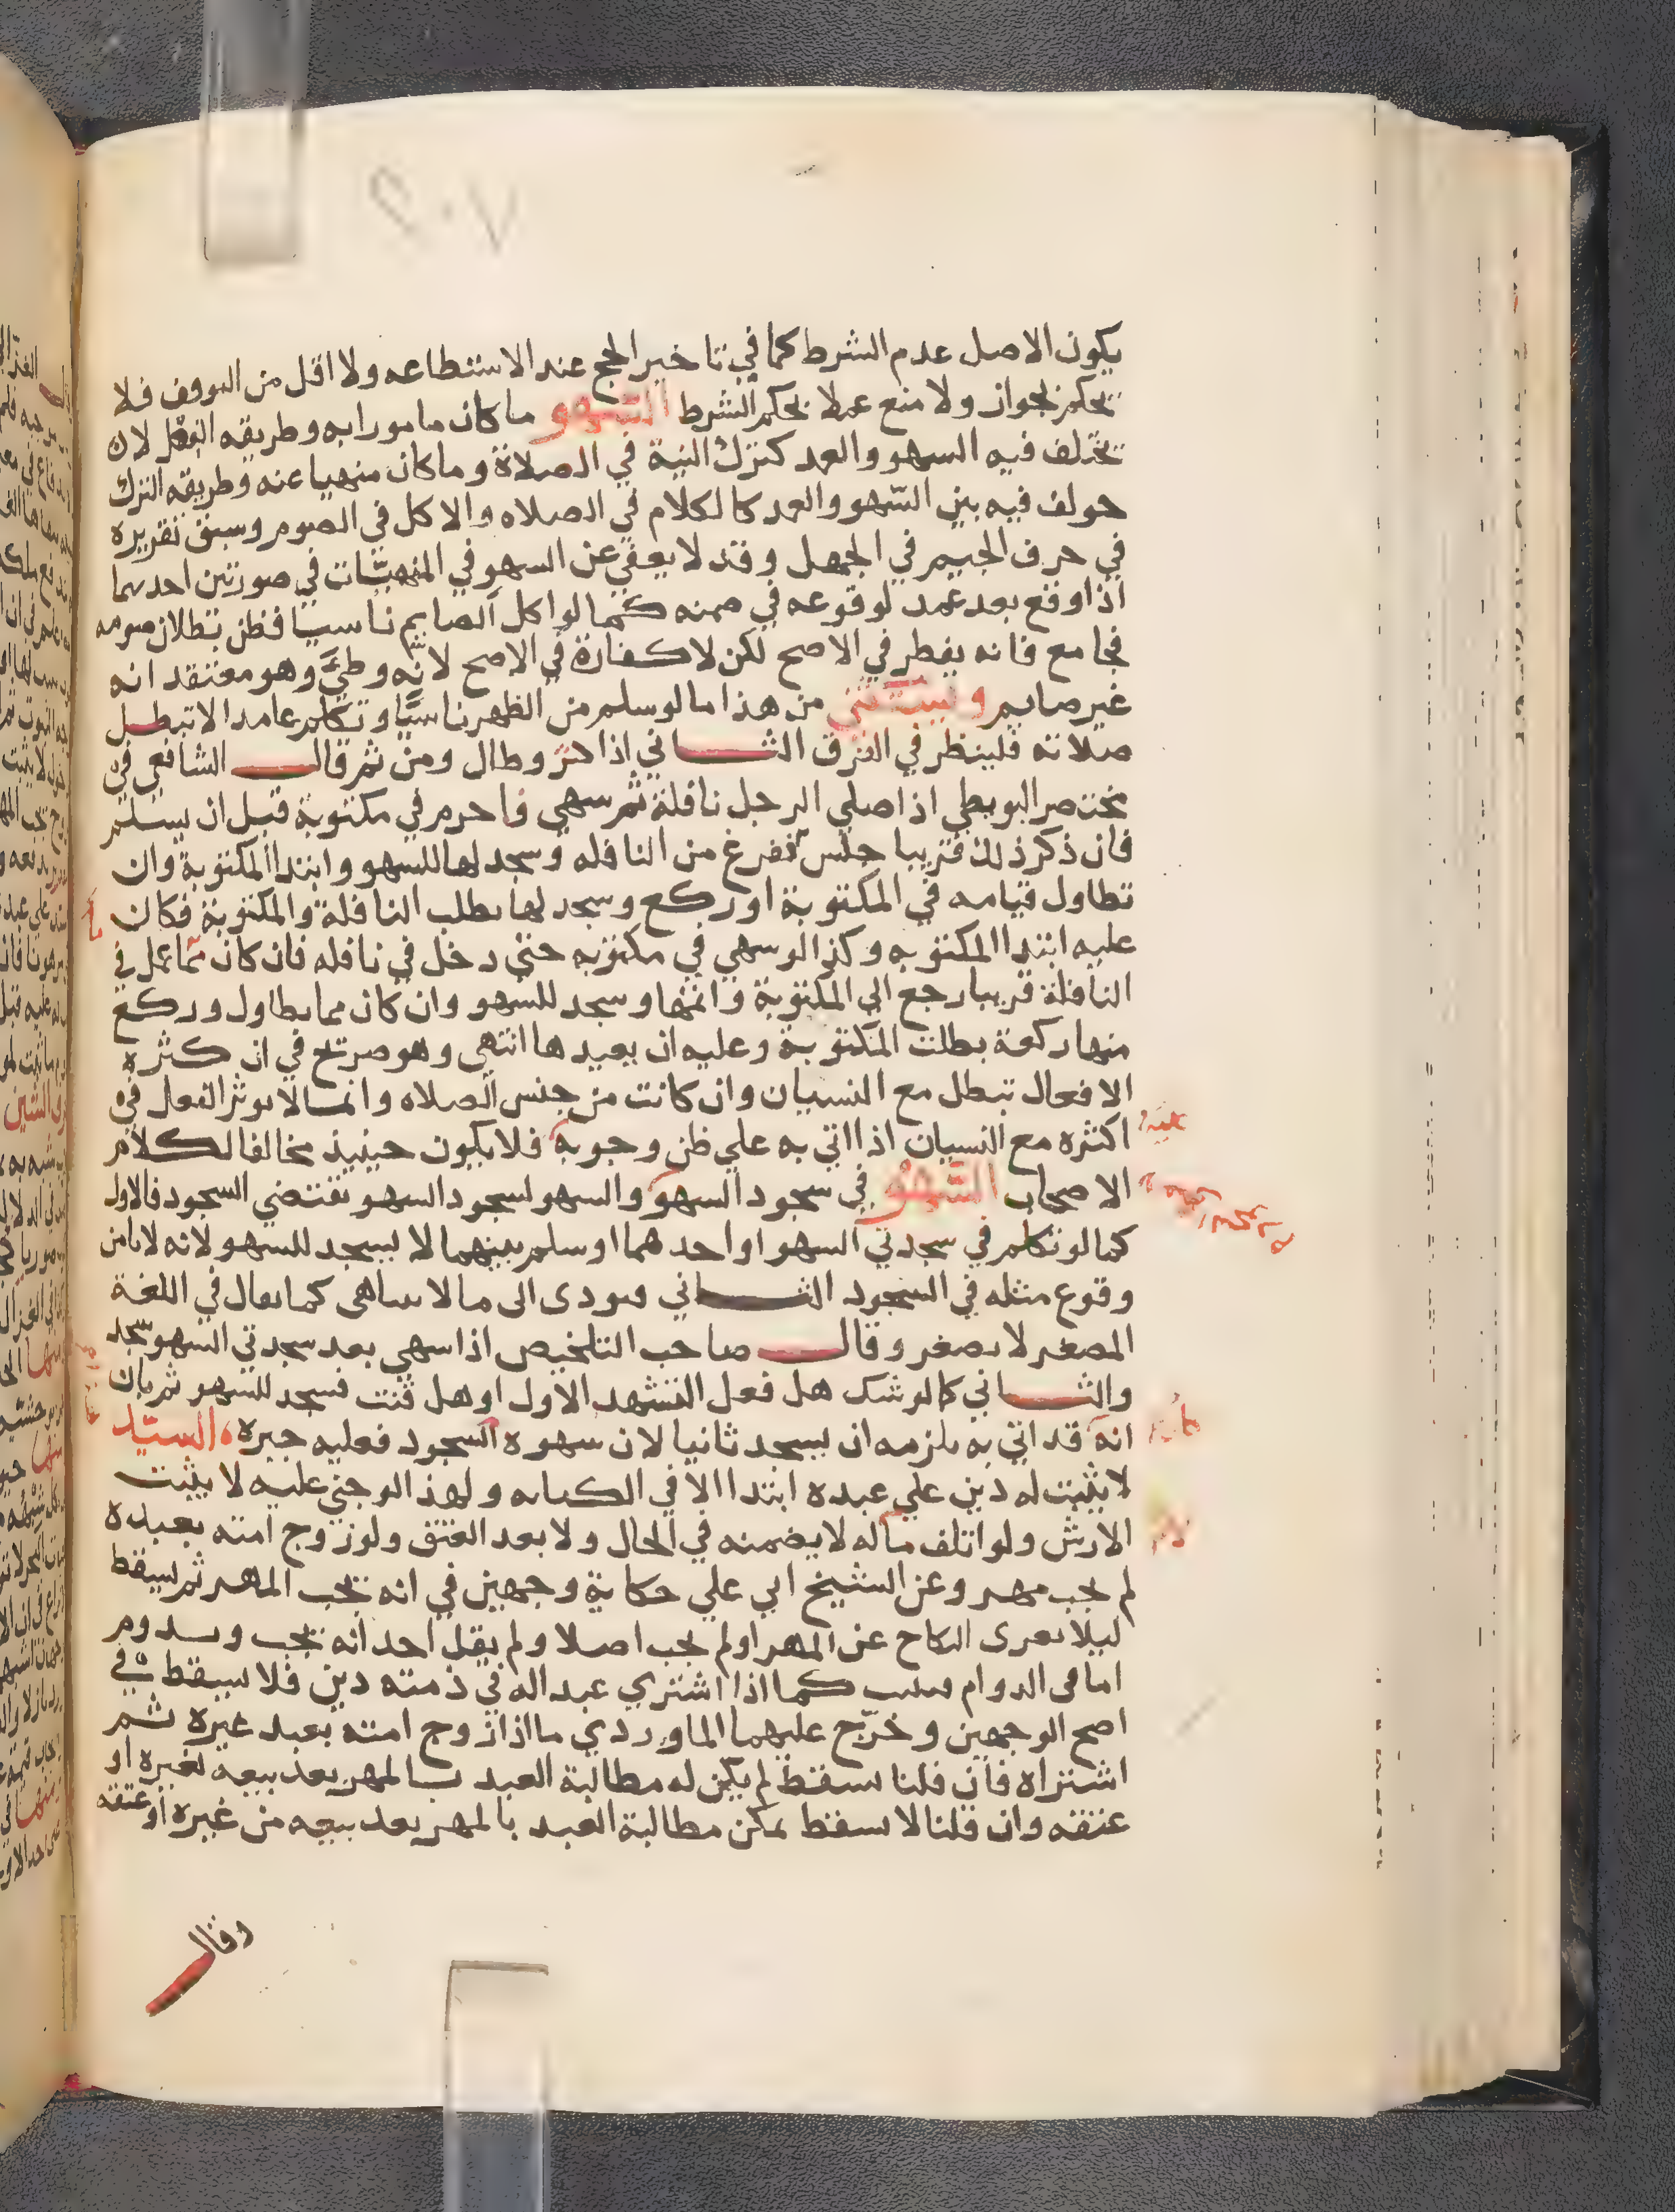 ٢٠٧
يكون الاصل عدم الشرط كما في تاخير الحج عند الاستطاعه ولا اقل من الوقف فلا
نحكم بجواز ولا منع عملا بحكم الشرط السهو ما كان مامورا به وطريقه الفعل لان
تختلف فيه السهو والعمد كترك النية في الصلاة وما كان منهيا عنه وطريقه الترك
خولف فيه بين السّهو والعمد كالكلام في الصلاه والاكل في الصوم وسبق تقريره
في حرف الجيم في الجهل وقد لا يعفي عن السهو في المنهيّات في صورتين احدهما
اذا وقع بعد عمد لوقوعه في ضمنه كما لو اكل الصايم ناسيا فظن بطلان صومه
فجامع فانه يفطر في الاصح لكن لا كفارة في الاصح لانّه وطيَ وهو معتقد انه
غير صايم ويستثني من هذا ما لو سلم من الظهر ناسيًا وتكلم عامدا لا تبطل
صلاته فلينظر في الفرق الثاني اذا كثر وطال ومن ثم قال الشافعي في
مختصر البويطي اذا صلي الرجل نافلة ثم سهي فاحرم في مكتوبة قبل ان يسلم
فان ذكر ذلك قريبا جلس ففرغ من النافله وسجد لها للسهو وابتدا المكتوبة وان
تطاول قيامه في المكتوبة او ركع وسجد لها بطلب النافلة والمكتوبة فكان
عليه ابتدا المكتوبه وكذا لو سهي في مكتوبه حتي دخل في نافله فان كان مما عمل في
النافلة قريبا رجع الي المكتوبة واتمها وسجد للسهو وان كان مما يطاول وركع
منها ركعة بطلت المكتوبة وعليه ان يعيدها انتهي وهو صريح في ان كثرة
الافعال تبطل مع النسيان وان كانت من جنس الصلاه وانما لا يوثر الفعل في
اكثره مع النسيان اذا اتي به علي ظن وجوبه فلا يكون حينيذ مخالفا لكلام
الاصحاب السّهو في سجود السهو والسهو لسجود السهو يقتضي السجود فالاول
كما لو تكلم في سجدتي السهو او احدهما او سلم بينهما لا يسجد للسهو لانه لا يامن
وقوع مثله في السجود الثاني فيودي الي ما لا يتناهي كما يقال في اللغة
المصغر لا يصغر وقال صاحب التلخيص اذا سهي بعد سجدتي السهو سجد
والثاني كما لو شك هل فعل التشهد الاول او هل قنت فسجد للسهو ثم بان
انه قد اتي به يلزمه ان يسجد ثانيا لان سهوه السجود فعليه جبره السيّد
لا يثبت له دين علي عبده ابتدا الا في الكتابه ولهذا لو جني عليه لا يثبت
الارش ولو اتلف ماله لا يضمنه في الحال ولا بعد العتق ولو زوج امته بعبده
لم يجب مهر وعن الشيخ ابي علي حكاية وجهين في انه يجب المهر ثم يسقط
ليلا يعري النكاح عن المهر او لم يجب اصلا ولم يقل احد انه يجب ويدوم
اما في الدوام فيثبت كما اذا اشتري عبدا له في ذمته دين فلا يسقط في
اصح الوجهين وخرّج عليهما الماوردي ما اذا زوج امته بعبد غيره ثم
اشتراه فان قلنا يسقط لم يكن له مطالبة العبد بالمهر بعد بيعه لغيره او
عتقه وان قلنا لا يسقط يمكن مطالبة العبد بالمهر بعد بيعه من غيره او عتقه
وقال